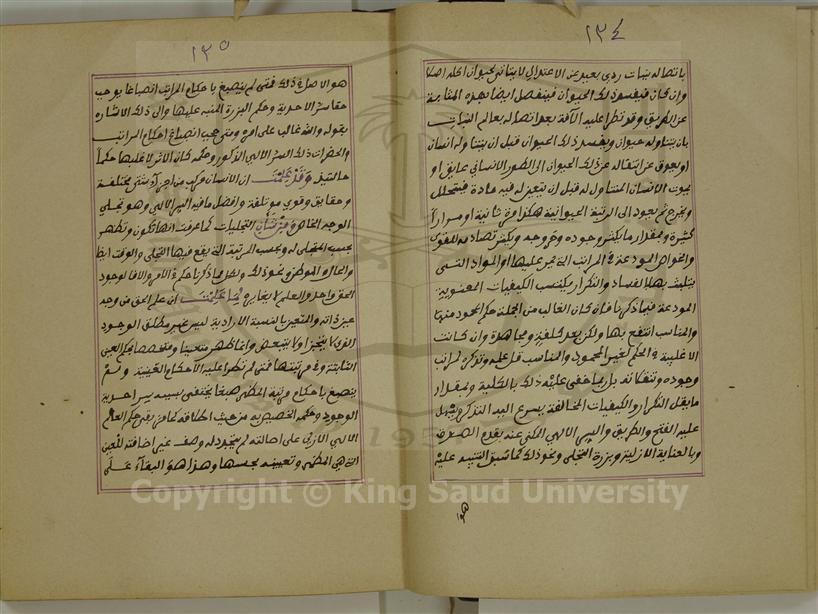 ١٣٤
باتصاله بنبات ردى بعيد عن الاعتدال لا يتأتى لحيوان اكله اصلا
وان كان فيفسد ذلك الحيوان فينفصل ايضا بهذه المثابة
عن الطريق وقد تطرا عليه الآفة بعد اتصاله بعالم النبات
بان يتناوله حيوان ويفسد ذلك الحيوان قبل ان يتناوله انسان
او يعوق عن انتقاله عن ذلك الحيوان الى الطور الانساني عايق او
يموت الانسان المتناول له قبل ان يتعين له فيه مادة فيتحلل
ويخرج ثم يعود الى الرتبة الحيوانية هكذا مرة ثانية او مرارا
كثيرة وبمقدار ما يكثر وجوده وخروجه ويكثر تضاده للقوى
والخواص المودعة في المراتب التي يمر عليها او المواد التي
يتلبس بها للفساد والتكرار يكتسب الكيفيات المعنوية
المودعة فيما ذكر فان كان الغالب من الجملة حكم المحمود منها
والمناسب انتفع بها ولكن بعد كلفة ومجاهدة وان كانت
الاغلبية في الحكم لغير المحمود والمناسب قل علمه وتذكره لمراتب
وجوده وتنقلاته بل ربما خفي عليه ذلك بالكلية وبمقدار
ما يقل التكرار والكيفيات المخالفة يسرع اليه التذكر ويسهل
عليه الفتح والطريق والسر الالهي المكنى عنه بقدم الصدق
وبالعناية الازلية وبزرة التجلى ونحو ذلك كما سبق التنبيه عليه
هو
١٣٥
هو الاصل في ذلك فمتى لم ينصبغ باحكام المراتب انصباغا يوجب
خفا سر الاحدية وحكم البزرة المنبه عليها والى ذلك الاشارة
بقوله والله غالب على امره ومتى وجب انصباغ احكام المراتب
والحضرات ذلك السر الالهي المذكور وحكمه كان الاثر لا غلبها حكما
حالتئذ وقد علمت ان الانسان مركب من اجزآء شتى مختلفة
وحقايق وقوى مؤتلفة وافضل ما فيه السر الالهي وهو تجلي
الوجه الخاص ومن شأن التجليات كما عرفت انها تكون وتظهر
بحسب المتجلى له وبحسب المرتبة التي يقع فيها التجلى والوقت ايضا
والحال والموطن ونحو ذلك ولكل مما ذكرنا حكم في الامر والافالوجود
الحق واحد والعلم لا يغايره لما علمت ان علم الحق من وجه
عين ذاته والتعين بالنسبة الارادية ليس غير مطلق الوجود
الذي لا يتجزا ولا يتبعض وانما ظهر متعينا ومتخصصا بحكم العين
الثابتة وفي مرتبتها فمتى لم تطرا عليه الاحكام الغيبية ولم
ينصبغ باحكام مرتبة المظهر صبغا يختفى بسببه سر احدية
الوجود وحكمه الخصيص به من حيث اطلاقه كما مر بقى حكم العالم
الالهي الازلى على اصالته لم يتجدد له وصف غير اضافته للعين
التي هي المظهر وتعيينه بحسبها وهذا هو البقآء على
Copyright © King Saud University
1957